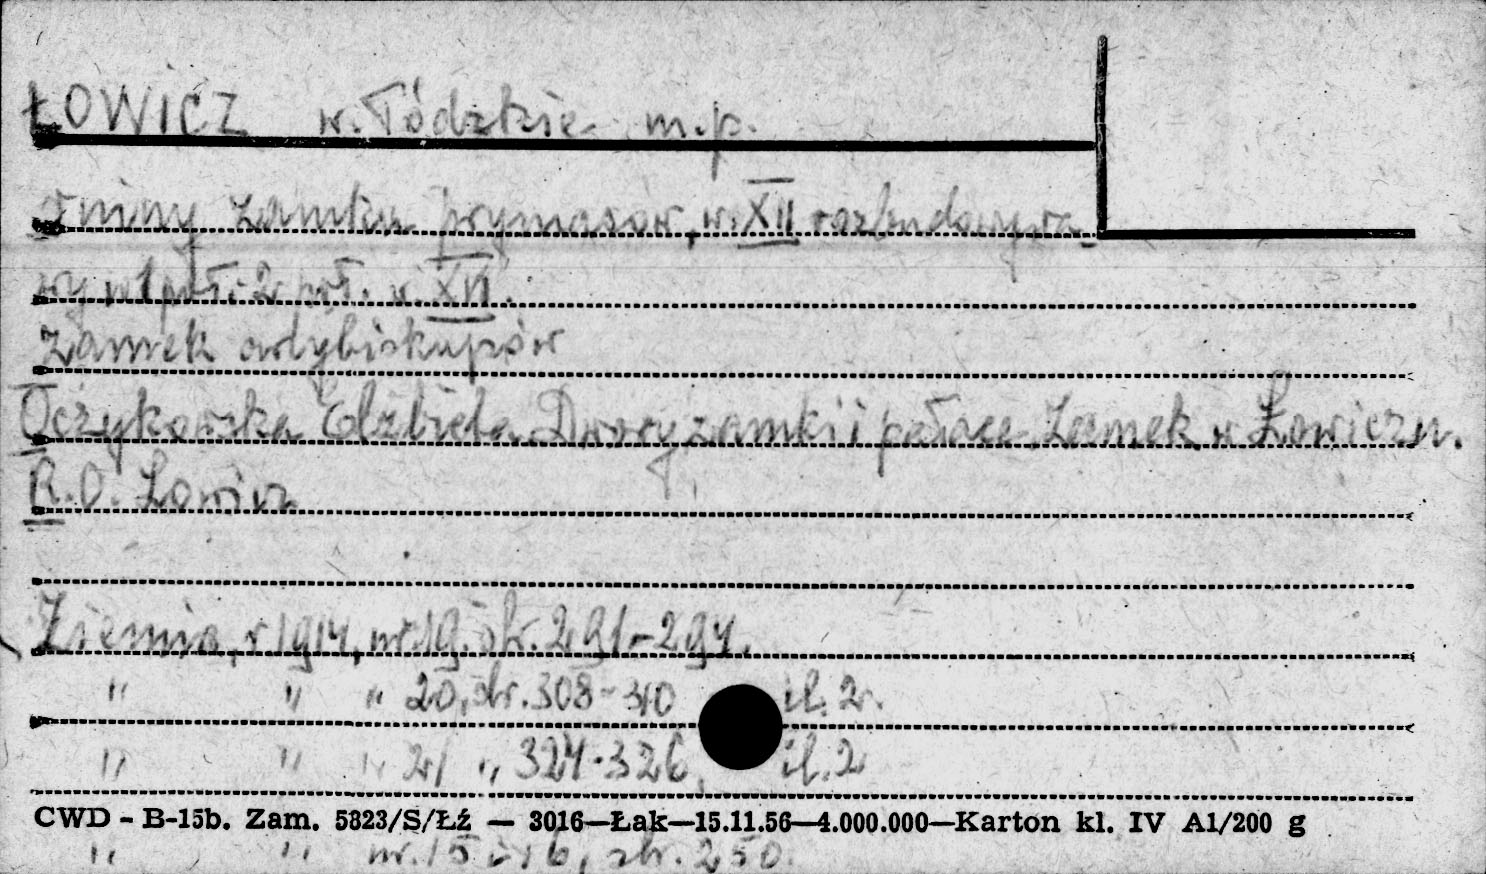 ŁOWICZ w. Łódzkie m.p.
ruiny zamku prymasów, w. XII rozbudowywa-
ny w 1 poł. i 2 poł. w. XVI.
Zamek arcybiskupów
Oczykowska Elżbieta Dwory zamki i pałace. Zamek w Łowiczu.
R.O. Łowicz
Ziemia, r 1914, nr.19. str. 291-294.
" " " 20, str. 308-310 il. 2.
" " " 21 " 324-326, il. 2
CWD - B-15b. Zam. 5823/S/Łź — 3016—Łak—15.11.56—4.000.000—Karton kl. IV A1/200 g
" " nr. 15 i 16, str. 250.